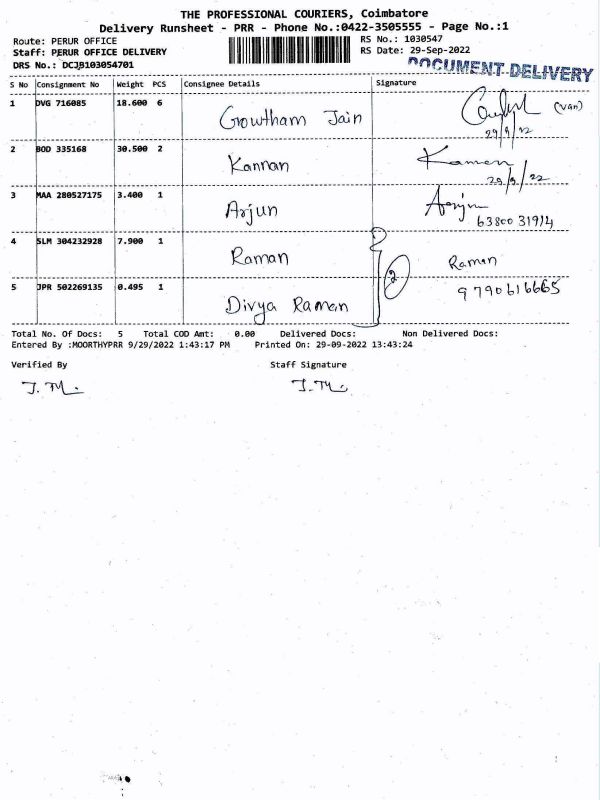 THE PROFESSIONAL COURIERS, Coimbatore
Delivery Runsheet - PRR - Phone No.:0422-3505555 - Page No.:1
Route: PERUR OFFICE RS No.: 1030547
Staff: PERUR OFFICE DELIVERY RS Date: 29-Sep-2022
DRS No.: DCJB103054701 DOCUMENT DELIVERY
S No Consignment No Weight PCS Consignee Details Signature
1 DVG 716085 18.600 6 Growtham Jain (van)
29/9/22
2 BOD 335168 30.500 2 Kannan Kannan
29/9/22
3 MAA 280527175 3.400 1 Arjun Arjun
63800 31914
4 SLM 304232928 7.900 1 Raman Raman
2
5 JPR 502269135 0.495 1 Divya Raman 9790616665
Total No. Of Docs: 5 Total COD Amt: 0.00 Delivered Docs: Non Delivered Docs:
Entered By :MOORTHYPRR 9/29/2022 1:43:17 PM Printed On: 29-09-2022 13:43:24
Verified By Staff Signature